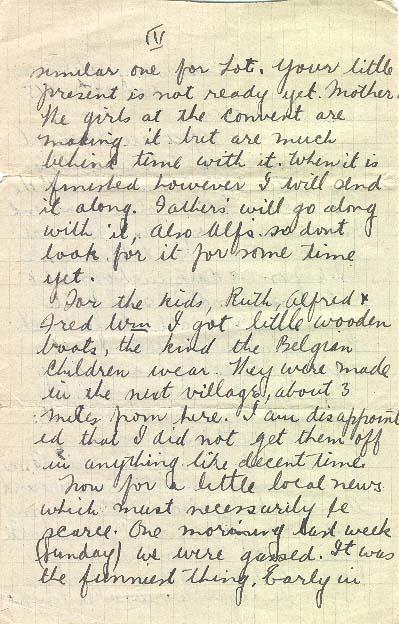 IV
similar one for Lot. Your little
present is not ready yet. Mother.
The girls at the convent are
making it but are much
behind time with it. When it is
finished however I will send
it along. Fathers will go along
with it, also Alfs. so dont
look for it for some time
yet.
For the kids, Ruth, Alfred &
Fred Wm I got little wooden
boots, the kind the Belgian
children wear. They were made
in the next village, about 3
miles from here. I am disappoint
ed that I did not get them off
in anything like decent time.
Now for a little local news
which must necessarily be
scarce. One morning last week
(Sunday) we were gassed. It was
the funniest thing, Early in